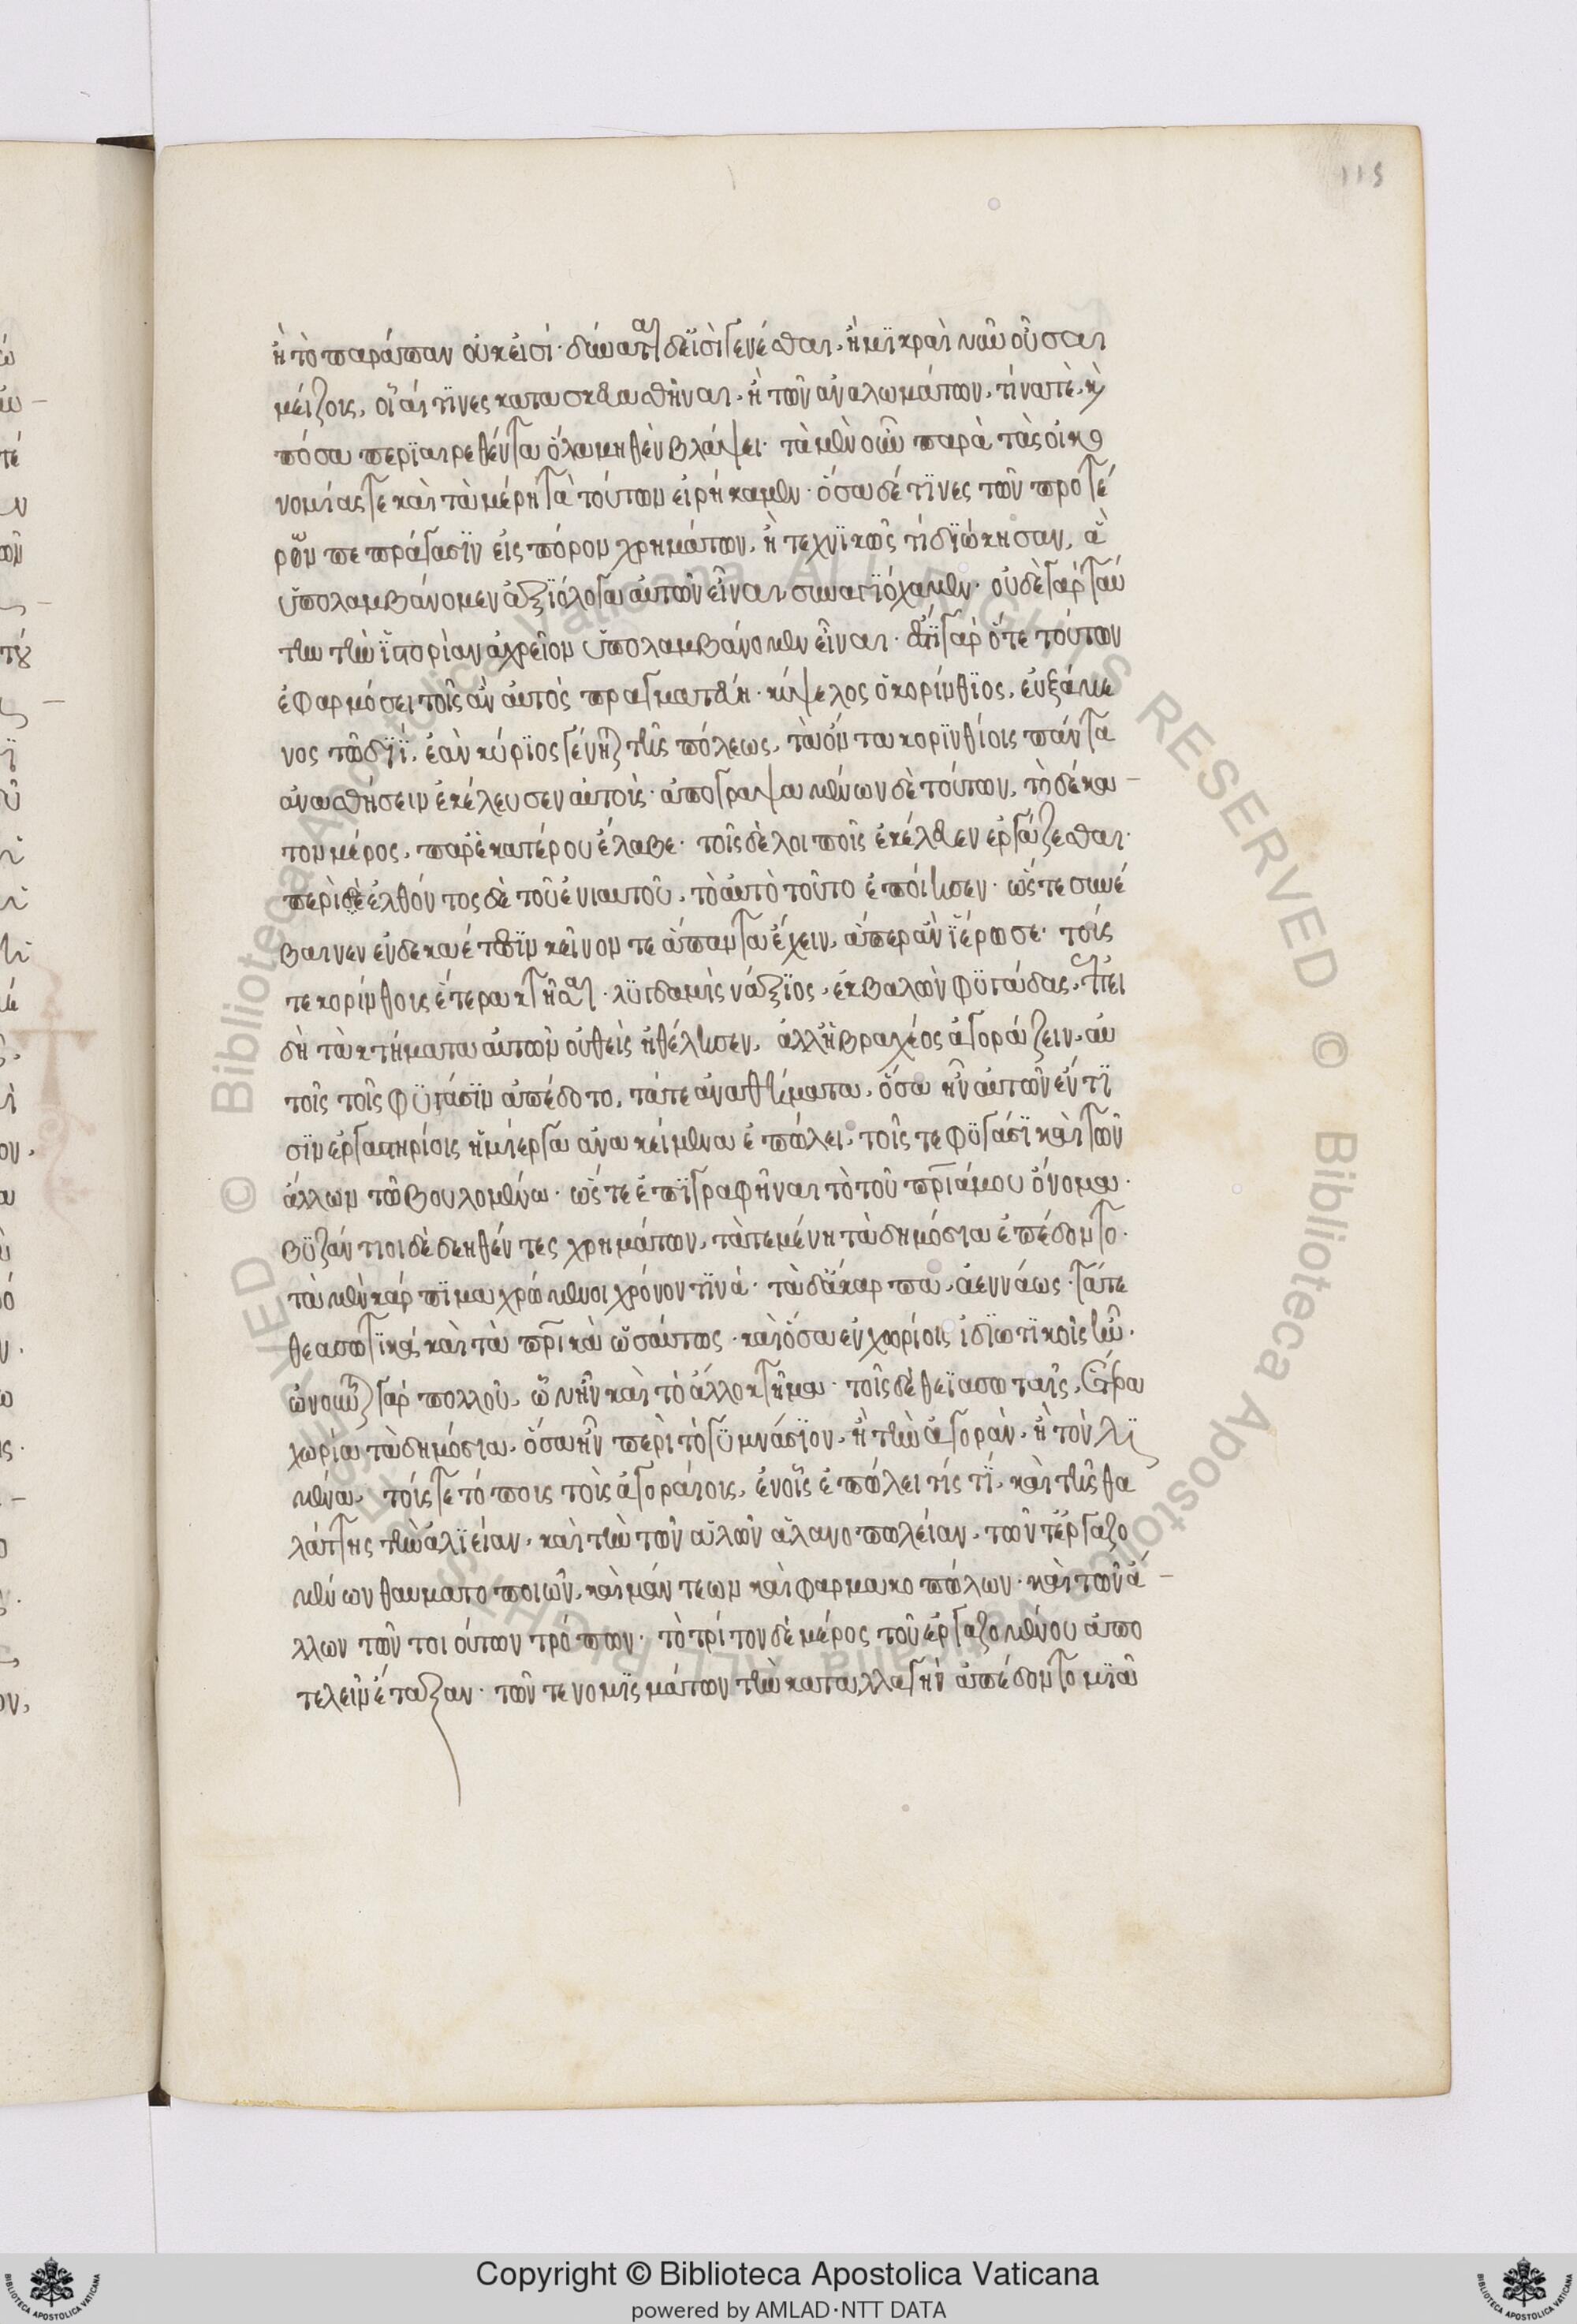 115
ἢ τὸ παράπαν οὐκ εἰσὶ· δύναται δ' εἰσὶ γενέσθαι. ἢ μικραὶ νῦν οὖσαι
μείζους, οἷαί τινες κατασκευασθῆναι. ἢ τῶν ἀναλωμάτων, τίνα τὲ, καὶ
πόσα περιαιρεθέντα ὅλα μηθὲν βλάψει· τὰ μὲν οὖν παρὰ τὰς οἰκο
νομίας τε καὶ τὰ μέρη τὰ τούτων εἰρήκαμεν· ὅσα δέ τινες τῶν προτέ
ρων πεπράγασιν εἰς πόρον χρημάτων, ἢ τεχνικῶς τὶ διώκησαν, ἃ
ὑπολαμβάνομεν ἀξιόλογα αὐτῶν εἶναι, συναγιόχαμεν· οὐδὲ γὰρ ταύ
την τὴν ἱστορίαν ἀχρεῖον ὑπολαμβάνομεν εἶναι· ἔστι γὰρ ὅτε τούτων
ἐφαρμόσει τοῖς ἂν αὐτὸς πραγματεύη· κύψελος ὁ κορίνθιος, εὐξάμε
νος τῶ διῒ, ἐὰν κύριος γένηται τῆς πόλεως, τὰ ὄντα κορινθίοις πάντα
ἀναθήσειν ἐκέλευσεν αὐτοῖς· ἀπογραψαμένων δὲ τούτων, τὸ δέκα
τον μέρος, παρ' ἑκατέρου ἔλαβε· τοῖς δὲ λοιποῖς ἐκέλευεν ἐργάζεσθαι·
περιδὲελθόντος δὲ τοῦ ἐνιαυτοῦ, τὸ αὐτὸ τοῦτο ἐποίησεν· ὥστε συνέ
βαινεν ἐν δέκα ἔτεσιν κεῖνον τε ἅπαντα ἔχειν, ἅπερ ἂν ἱέρωσε· τοίς
τε κορίνθοις ἕτερα κτῆσαι· λύγδαμις νάξιος, ἐκβαλὼν φυγάδας, ἐπει
δὴ τὰ κτήματα αὐτῶν οὐθεὶς ἠθέλησεν, ἀλλ' ἢ βραχέος ἀγοράζειν, αὐ
τοῖς τοῖς φυγάσιν ἀπέδοτο, τά τε ἀναθήματα, ὅσα ἦν αὐτῶν ἔν τι
σιν ἐργαστηρίοις ἡμίεργα ἀνακείμενα ἐπώλει, τοῖς τε φυγάσι καὶ τῶν
ἄλλων τῶ βουλομένω· ὥστε ἐπιγραφῆναι τὸ τοῦ πριάμου ὄνομα·
βυζάντιοι δὲ δεηθέντες χρημάτων, τὰ τεμένη τὰ δημόσια ἐπέδοντο·
τὰ μὲν κάρπιμα χρώμενοι χρόνον τινά· τὰ δ' ἄκαρπα, ἀεννάως· τά τε
θεασωτικά καὶ τὰ πρικὰ ὡσαύτως· καὶ ὅσα ἐν χωρίοις ἰδιωτικοῖς ἦν·
ὠνοῦνται γὰρ πολλοῦ, ὧν ἦν καὶ τὸ ἄλλο κτῆμα· τοῖς δὲ θειασωταῖς, ἕτερα
χωρία τὰ δημόσια, ὅσα ἦν περὶ τὸ γυμνάσιον, ἢ τὴν ἀγορὰν, ἢ τὸν λι
μένα, τούς τε τόποις τοὺς ἀγοραίοις, ἐν οἷς ἐπώλει τίς τί, καὶ τῆς θα
λάττης τὴν ἁλιείαν, καὶ τὴν τῶν αὐλῶν ἁλανοπωλείαν, τῶν τ' ἐργαζο
μένων θαυματοποιῶν, καὶ μάντεων καὶ φαρμακοπώλων· καὶ τῶν ἀ
λλων τῶν τοιούτων τρόπων· τὸ τρίτον δὲ μέρος τοῦ ἐργαζομένου ἀπο
τελεῖν ἔταξαν· τῶν τε νομισμάτων τὴν καταλλαγὴν ἀπέδοντο μιᾶ
© Biblioteca Apostolica Vaticana ALL RIGHTS RESERVED
Copyright © Biblioteca Apostolica Vaticana
powered by AMLAD·NTT DATA